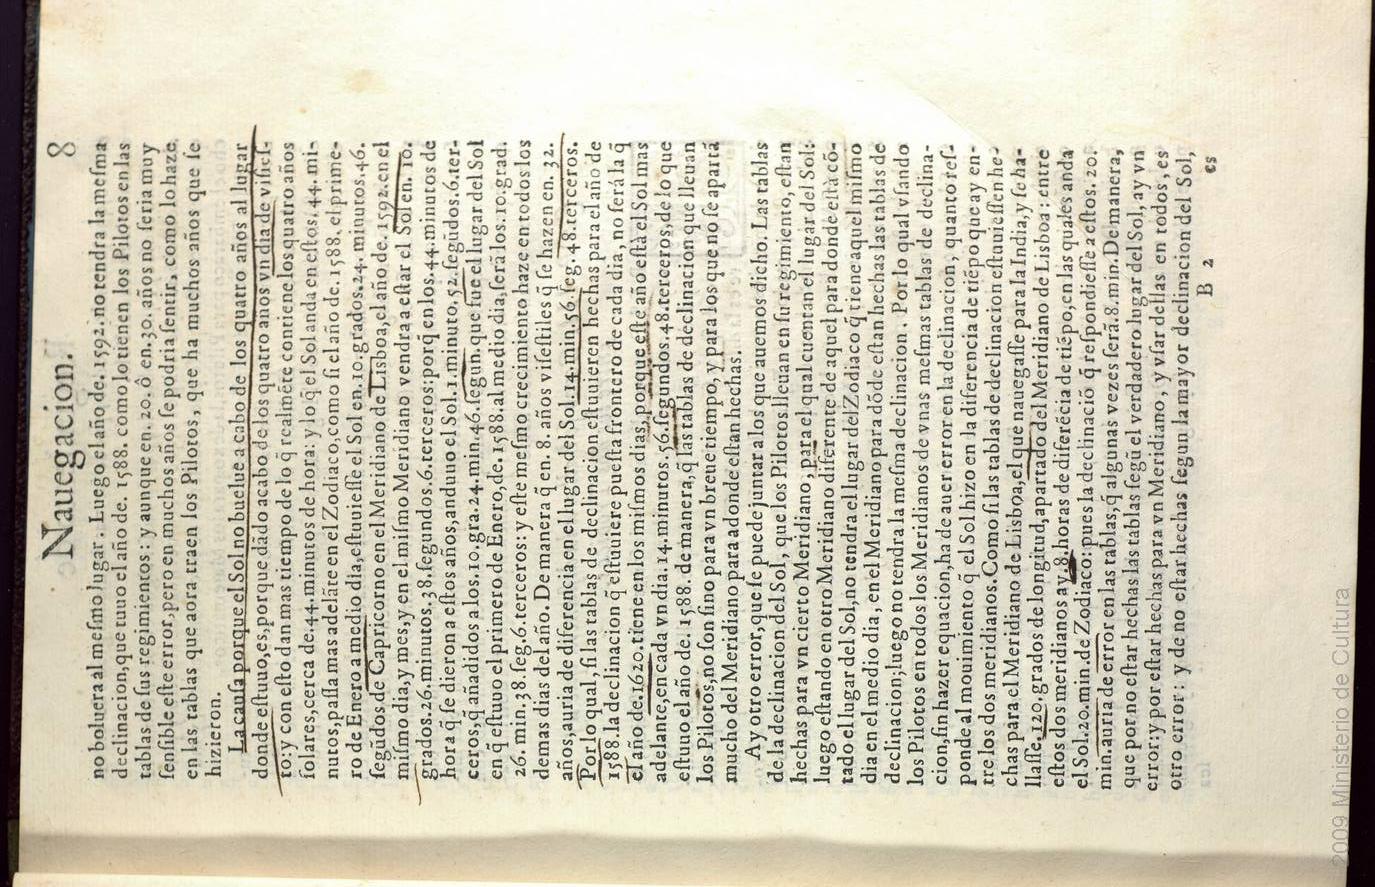 Nauegacion. 8
no boluera al meſmo lugar. Luego el año de. 1592. no tendra la meſma
declinacion, que tuuo el año de. 1588. como lo tienen los Pilotos en las
tablas de ſus regimientos: y aunque en. 20. ô en. 30. años no ſeria muy
ſenſible eſte error, pero en muchos años ſe podria ſentir, como lo haze
en las tablas que aora traen los Pilotos, que ha muchos años que ſe
hizieron.
La cauſa porque el Sol no buelue a cabo de los quatro años al lugar
donde eſtuuo, es, porque dãdo acabo de los quatro años vn dia de viſieſ-
to: y con eſto dan mas tiempo de lo q̃ realmẽte contienẽ los quatro años
ſolares, cerca de. 44. minutos de hora: y lo q̃ el Sol anda en eſtos. 44. mi-
nutos, paſſa mas adelãte en el Zodiaco, como ſi el año de. 1588. el prime-
ro de Enero a medio dia, eſtuuieſſe el Sol en. 10. grados. 24. minutos. 46.
ſegũdos de Capricorno en el Meridiano de Lisboa, el año de. 1592. en el
miſmo dia, y mes, y en el miſmo Meridiano vendra a eſtar el Sol en. 10.
grados. 26. minutos. 38. ſegundos. 6. terceros: porq̃ en los. 44. minutos de
hora q̃ ſe dieron a eſtos años, anduuo el Sol. 1. minuto. 52. ſegũdos. 6. ter-
ceros, q̃ añadidos a los. 10. gra. 24. min. 46. ſegun. que fue el lugar del Sol
en q̃ eſtuuo el primero de Enero, de. 1588. al medio dia, ſerã los. 10. grad.
26. min. 38. ſeg. 6. terceros: y eſte meſmo crecimiento haze en todos los
demas dias del año. De manera q̃ en. 8. años viſeſtiles q̃ ſe hazen en. 32.
años, auria de diferencia en el lugar del Sol. 14. min. 56. ſeg. 48. terceros.
Por lo qual, ſi las tablas de declinacion eſtuuieren hechas para el año de
1588. la declinacion q̃ eſtuuiere pueſta frontero de cada dia, no ſerá la q̃
el año de. 1620. tiene en los miſmos dias, porque eſte año eſtà el Sol mas
adelante, en cada vn dia. 14. minutos. 56. ſegundos. 48. terceros, de lo que
eſtuuo el año de. 1588. de manera, q̃ las tablas de declinacion que lleuan
los Pilotos, no ſon ſino para vn breue tiempo, y para los que no ſe apartã
mucho del Meridiano para adonde eſtan hechas.
Ay otro error, que ſe puede juntar a los que auemos dicho. Las tablas
de la declinacion del Sol, que los Pilotos lleuan en ſu regimiento, eſtan
hechas para vn cierto Meridiano, para el qual cuentan el lugar del Sol:
luego eſtando en otro Meridiano diferente de aquel para donde eſtà cõ-
tado el lugar del Sol, no tendra el lugar del Zodiaco q̃ tiene aquel miſmo
dia en el medio dia, en el Meridiano para dõde eſtan hechas las tablas de
declinacion; luego no tendra la meſma declinacion. Por lo qual vſando
los Pilotos en todos los Meridianos de vnas meſmas tablas de declina-
cion, ſin hazer equacion, ha de auer error en la declinacion, quanto reſ-
ponde al mouimiento q̃ el Sol hizo en la diferencia de tiẽpo que ay en-
tre los dos meridianos. Como ſi las tablas de declinacion eſtuuieſſen he-
chas para el Meridiano de Lisboa, el que nauegaſſe para la India, y ſe ha-
llaſſe. 120. grados de longitud, apartado del Meridiano de Lisboa: entre
eſtos dos meridianos ay. 8. horas de diferẽcia de tiẽpo, en las quales anda
el Sol. 20. min. de Zodiaco: pues la declinació q̃ reſpondieſſe a eſtos. 20.
min. auria de error en las tablas, q̃ algunas vezes ſerã. 8. min. De manera,
que por no eſtar hechas las tablas ſegũ el verdadero lugar del Sol, ay vn
error: y por eſtar hechas para vn Meridiano, y vſar dellas en todos, es
otro error: y de no eſtar hechas ſegun la mayor declinacion del Sol,
B 2 es
2009 Ministerio de Cultura